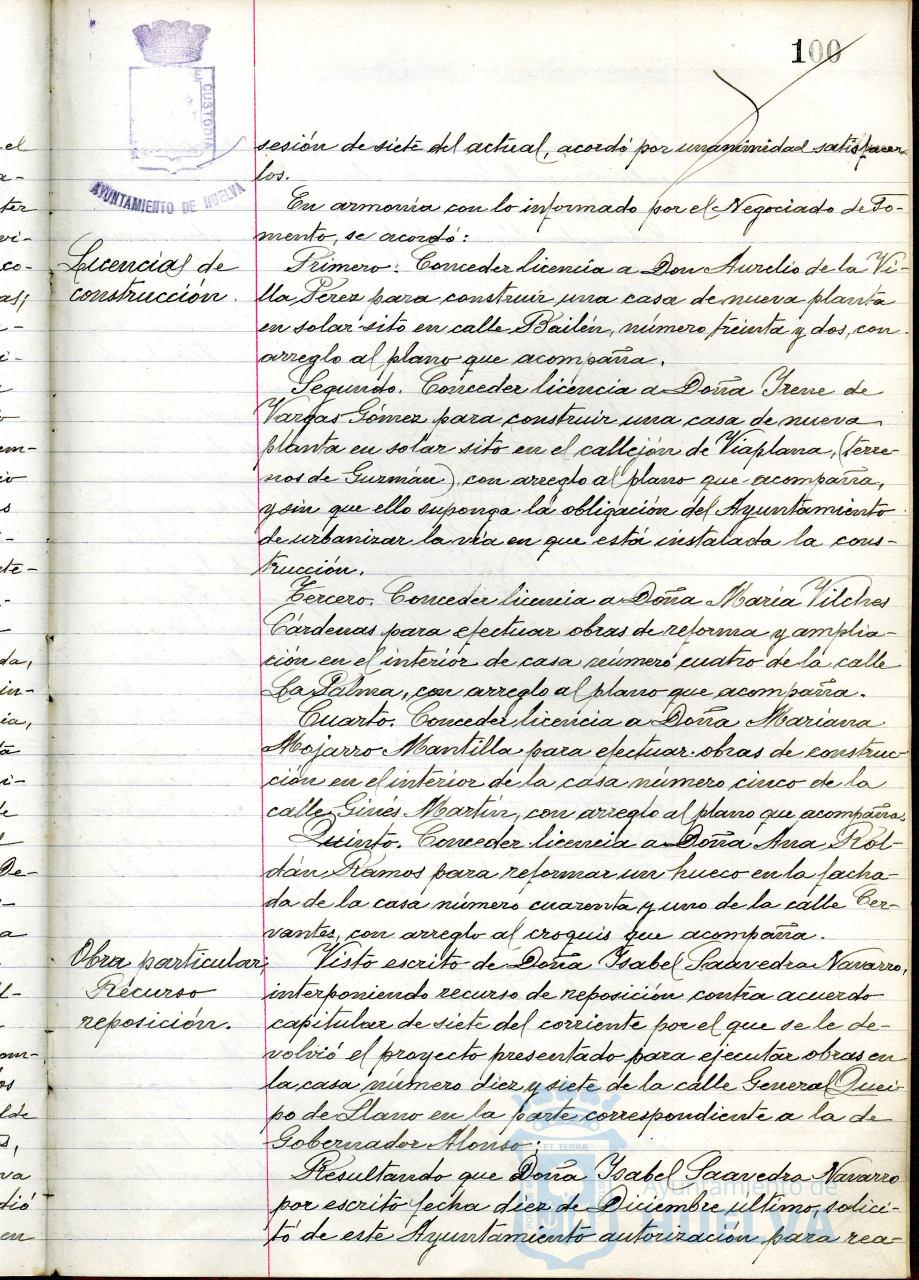 100
CUSTODIA
AYUNTAMIENTO DE HUELVA
sesión de siete del actual, acordó por unanimidad satisfacer-
los.
En armonía con lo informado por el Negociado de Fo-
mento, se acordó:
Licencias de
construcción.
Primero: Conceder licencia a Don Aurelio de la Vi-
lla Pérez para construir una casa de nueva planta
en solar sito en calle Bailén, número treinta y dos, con
arreglo al plano que acompaña.
Segundo. Conceder licencia a Doña Irene de
Vargas Gómez para construir una casa de nueva
planta en solar sito en el callejón de Viaplana, (terre-
nos de Guzmán), con arreglo al plano que acompaña,
y sin que ello suponga la obligación del Ayuntamiento
de urbanizar la vía en que está instalada la cons-
trucción.
Tercero. Conceder licencia a Doña María Vilches
Cárdenas para efectuar obras de reforma y amplia-
ción en el interior de casa número cuatro de la calle
La Palma, con arreglo al plano que acompaña.
Cuarto. Conceder licencia a Doña Mariana
Mojarro Mantilla para efectuar obras de construc-
ción en el interior de la casa número cinco de la
calle Ginés Martín, con arreglo al plano que acompaña.
Quinto. Conceder licencia a Doña Ana Rol-
dán Ramos para reformar un hueco en la facha-
da de la casa número cuarenta y uno de la calle Cer-
vantes, con arreglo al croquis que acompaña.
Obra particular;
Recurso
reposición.
Visto escrito de Doña Isabel Saavedra Navarro,
interponiendo recurso de reposición contra acuerdo
capitular de siete del corriente por el que se le de-
volvió el proyecto presentado para ejecutar obras en
la casa número diez y siete de la calle General Quei-
po de Llano en la parte correspondiente a la de
Gobernador Alonso;
Resultando que Doña Isabel Saavedra Navarro
por escrito fecha diez de Diciembre último, solici-
tó de este Ayuntamiento autorización para rea-
Ayuntamiento de
HUELVA